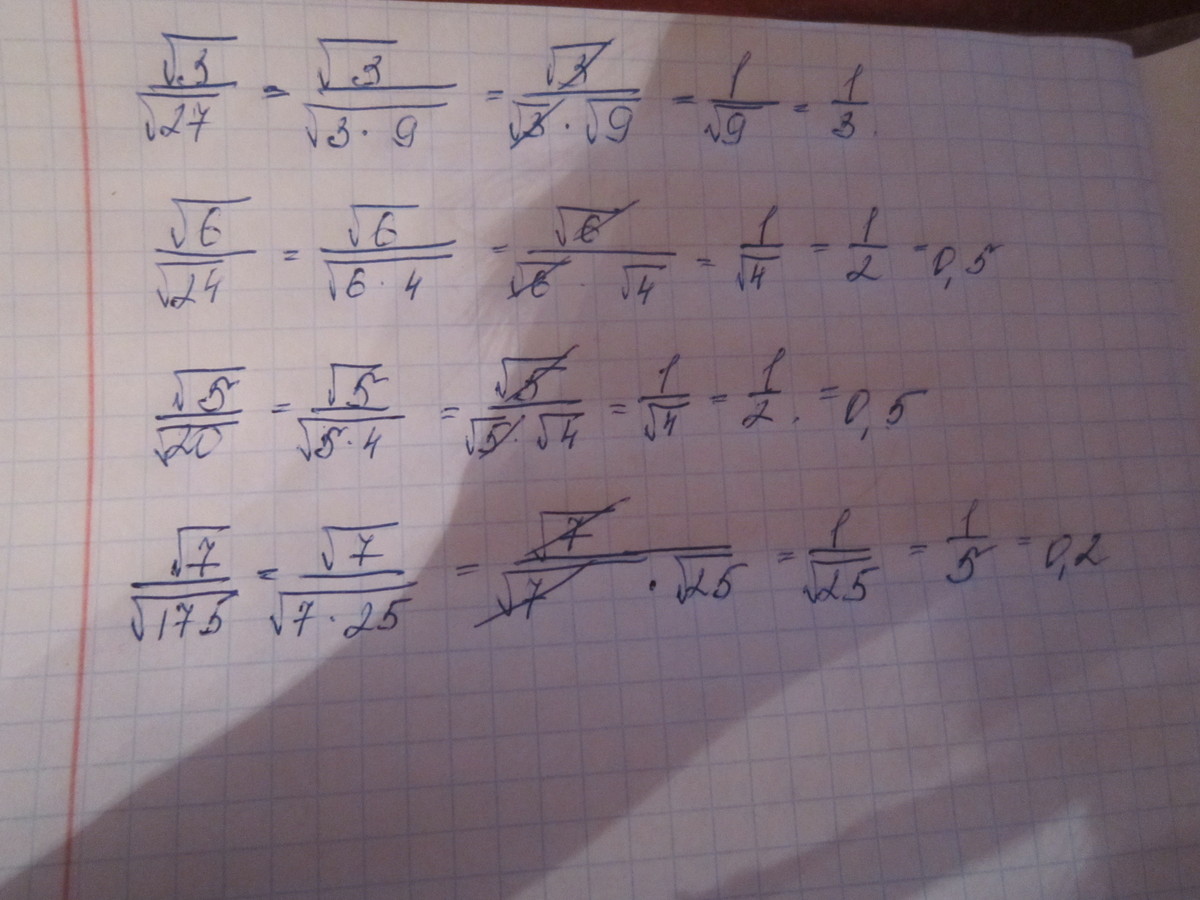 √3/√27 = √3/√(3·9) = √3/(√3·√9) = 1/√9 = 1/3.
√6/√24 = √6/√(6·4) = √6/(√6·√4) = 1/√4 = 1/2 = 0,5
√5/√20 = √5/√(5·4) = √5/(√5·√4) = 1/√4 = 1/2. = 0,5
√7/√175 = √7/√(7·25) = √7/(√7·√25) = 1/√25 = 1/5 = 0,2